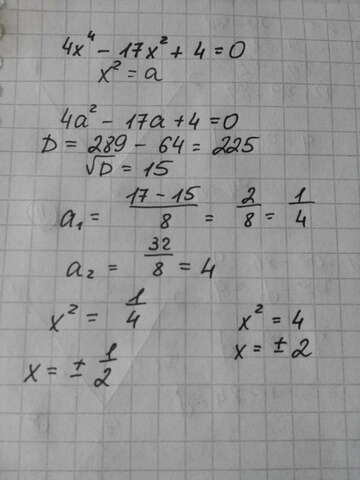 4x⁴ − 17x² + 4 = 0
x² = a
4a² − 17a + 4 = 0
D = 289 − 64 = 225
√D = 15
a₁ = (17 − 15)/8 = 2/8 = 1/4
a₂ = 32/8 = 4
x² = 1/4
x = ± 1/2
x² = 4
x = ± 2